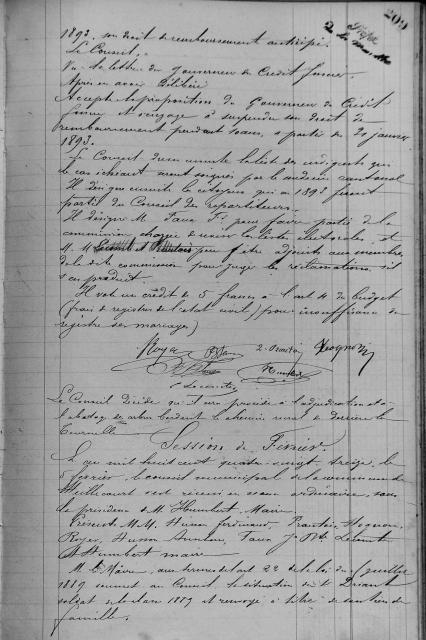 209
1893, son droit de remboursement anticipé.
Le Conseil,
Vu la lettre du Gouverneur du Crédit foncier.
Après en avoir Délibéré
Accepte la proposition du Gouverneur du Crédit
foncier et s'engage à suspendre son droit de
remboursement pendant ans, à partir du 20 janvier
1893.
Le Conseil dresse ensuite la liste des indigents qui
le cas échéant seront soignés par le médecin cantonal
Il désigne ensuite les citoyens qui en 1893 feront
partie du Conseil de répartiteurs.
Il désigne M. pour faire partie de la
commission chargée de la liste électorale, et
M. M. pour être adjoints aux membres
de la dite commission pour juger les réclamations s'il
s'en produit.
Il vote un crédit de 5 francs à l'art 4 du budget
(frais de registres de l'état civil) pour insuffisance du
registre des mariages)
Royer
Humbert
Le Conseil Décide qu'il sera procédé à l'adjudication de
arbres bordant le chemin rural de derrière la
Session de Février.
L'an mil huit cent quatre-vingt treize, le
5 février, le conseil municipal de la commune de
s'est réuni en session ordinaire, sous
la présidence de M. Humbert, Maire.
Présents M.M. Husson
Royer, Husson
et Humbert maire
M. le Maire, aux termes de l'art 22 de la loi du juillet
1889 soumet au Conseil la situation du
soldat de la classe 1889 et renvoyé à titre de soutien de
famille.